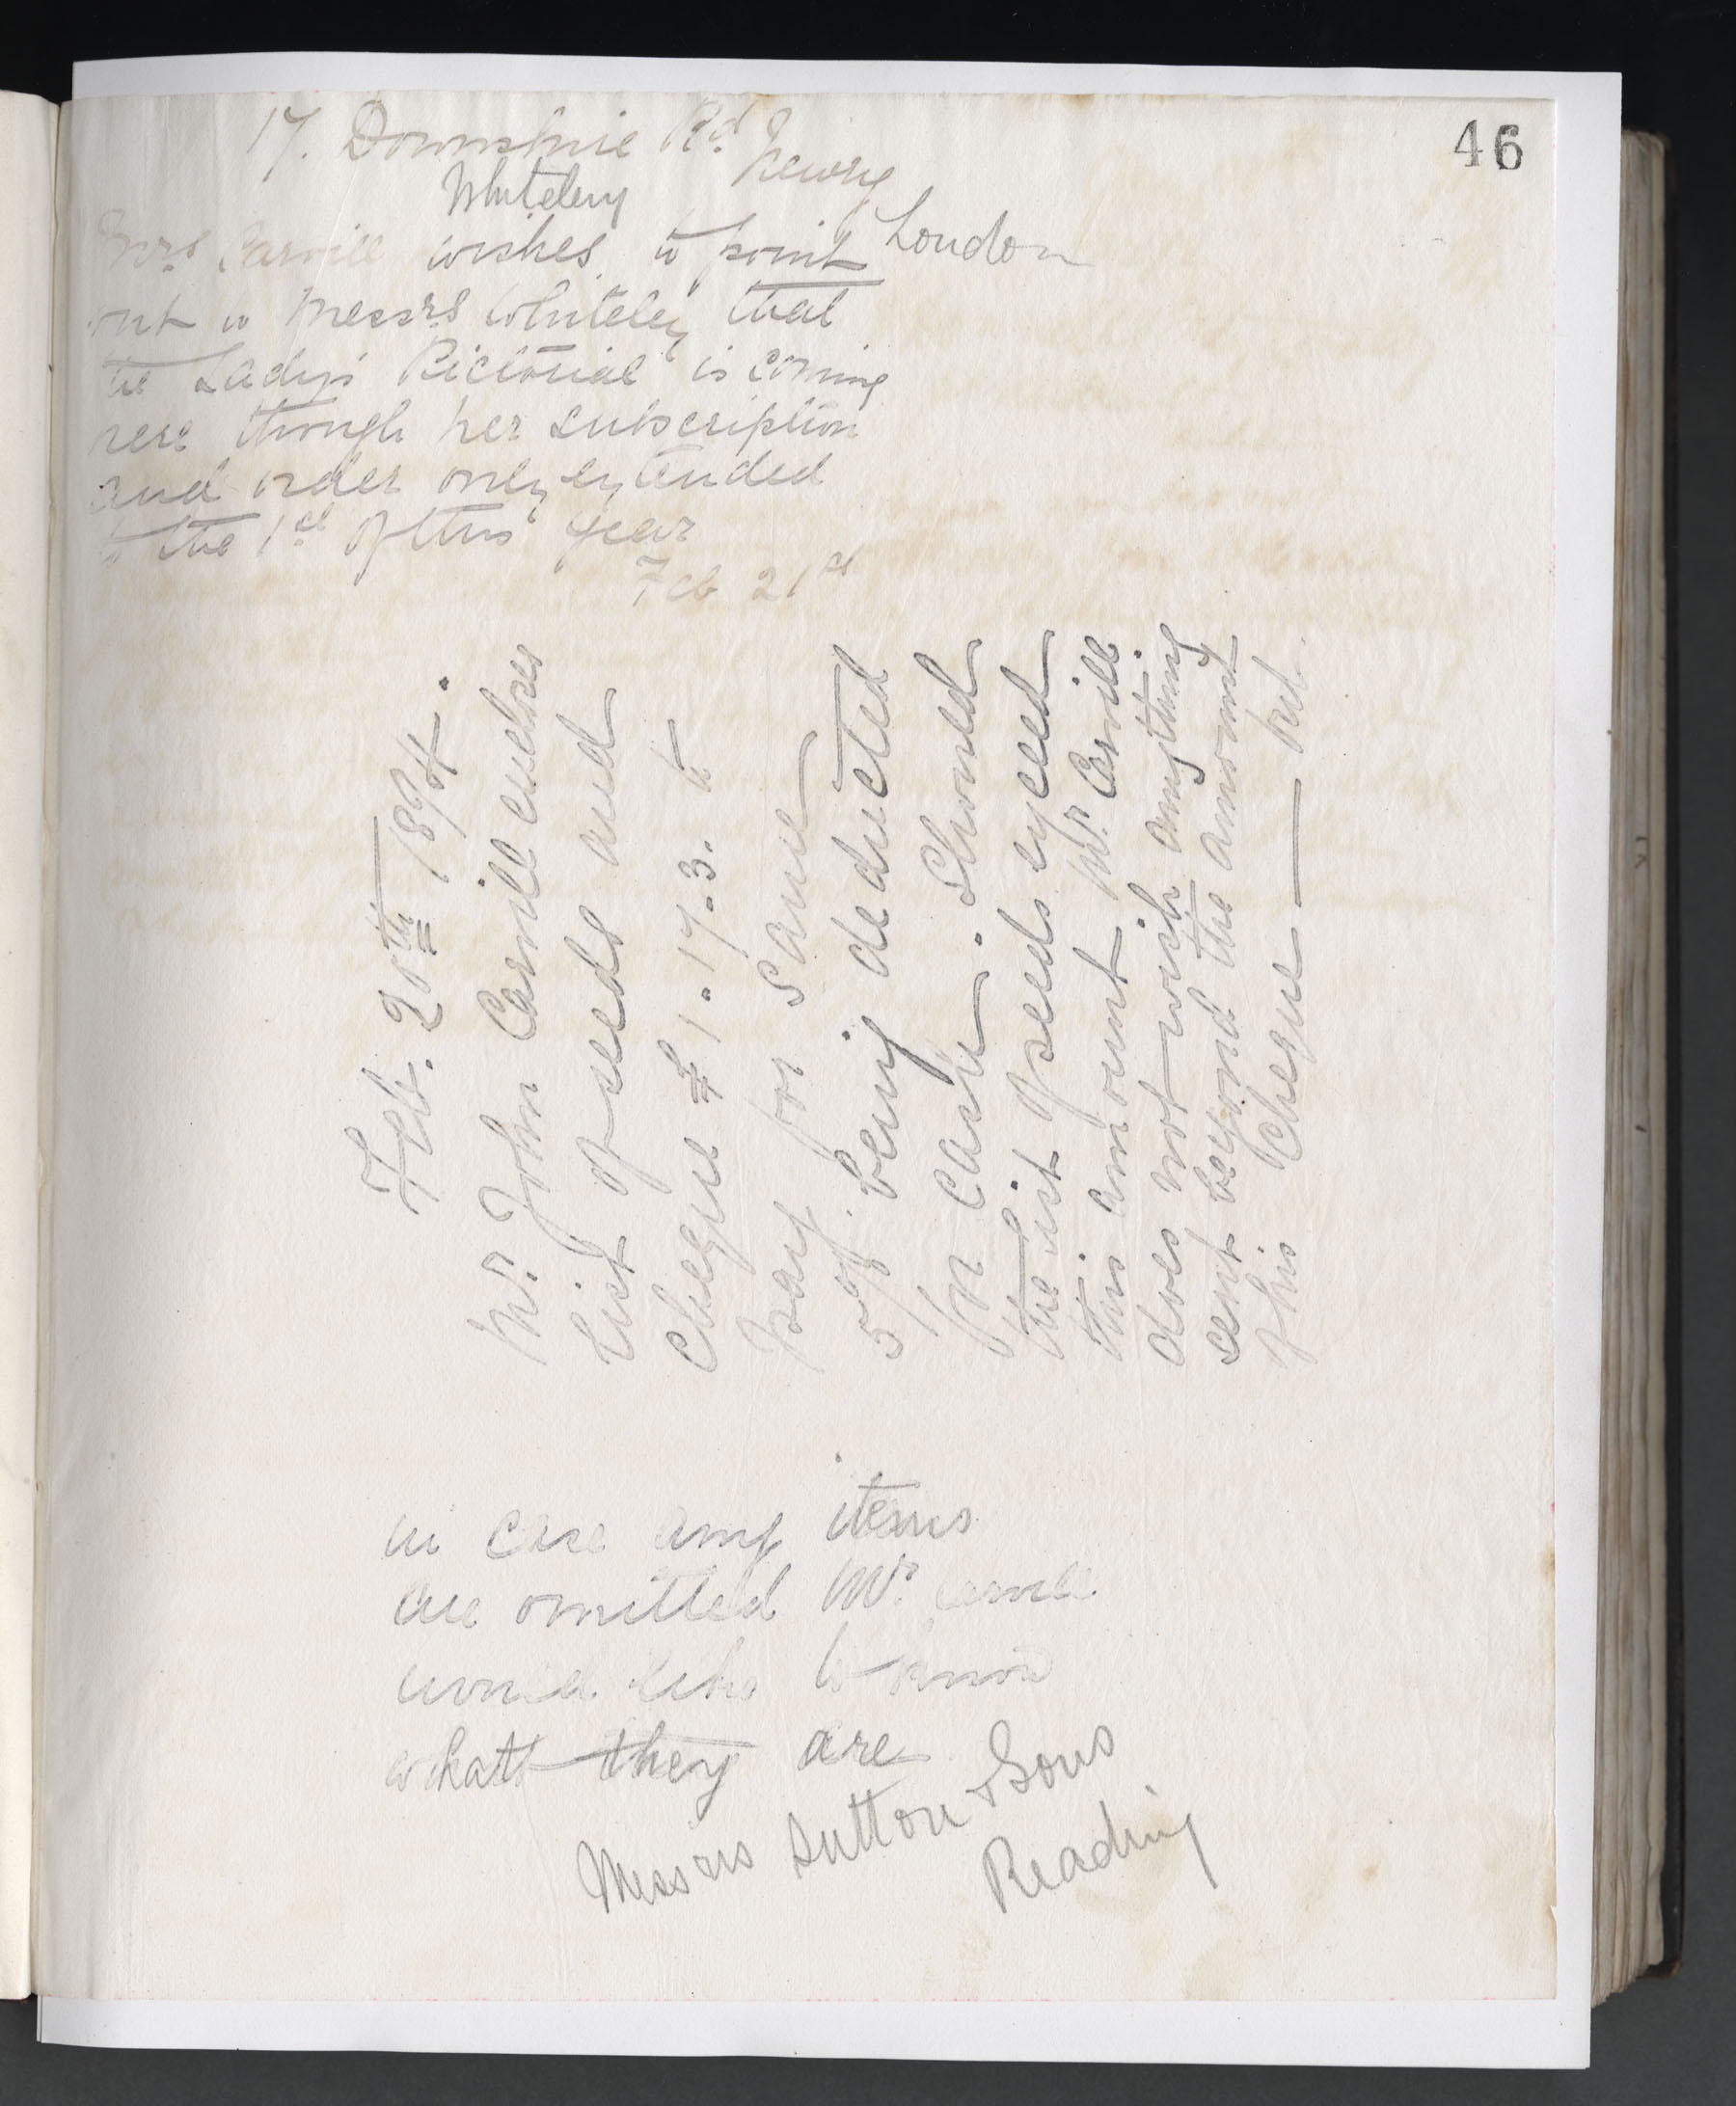 46
17. Downshire Rd. Newry
Whiteley
London
Mrs Carvill wishes to point
out to Messrs Whiteley that
the Lady's Pictorial is coming
here though her subscription
and order only extended
to the 1st of this year
Feb 21st
Feb. 20th 1894.
Mr. John Carvill encloses
List of seeds and
Cheque £1.17.3. to
pay for same
5% being deducted
for cash. Should
the list of seeds exceed
this amount Mr. Carvill
does not wish anything
sent beyond the amount
of his Cheque — but
in case any items
are omitted Mr. Carvill
would like to know
what they are
Messrs Sutton & Sons
Reading